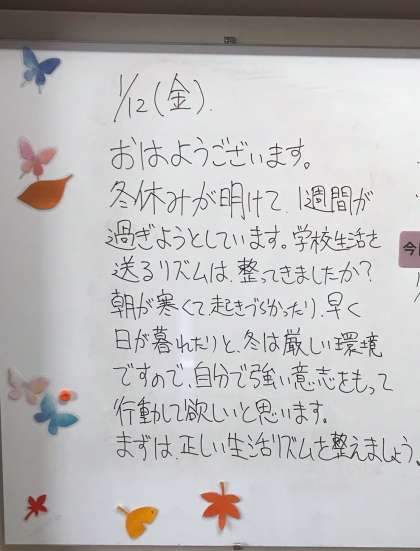 1/12(金).
おはようございます。
冬休みが明けて、1週間が
過ぎようとしています。学校生活を
送るリズムは、整ってきましたか?
朝が寒くて起きづらかったり、早く
日が暮れたりと、冬は厳しい環境
ですので、自分で強い意志をもって
行動して欲しいと思います。
まずは、正しい生活リズムを整えましょう。
今